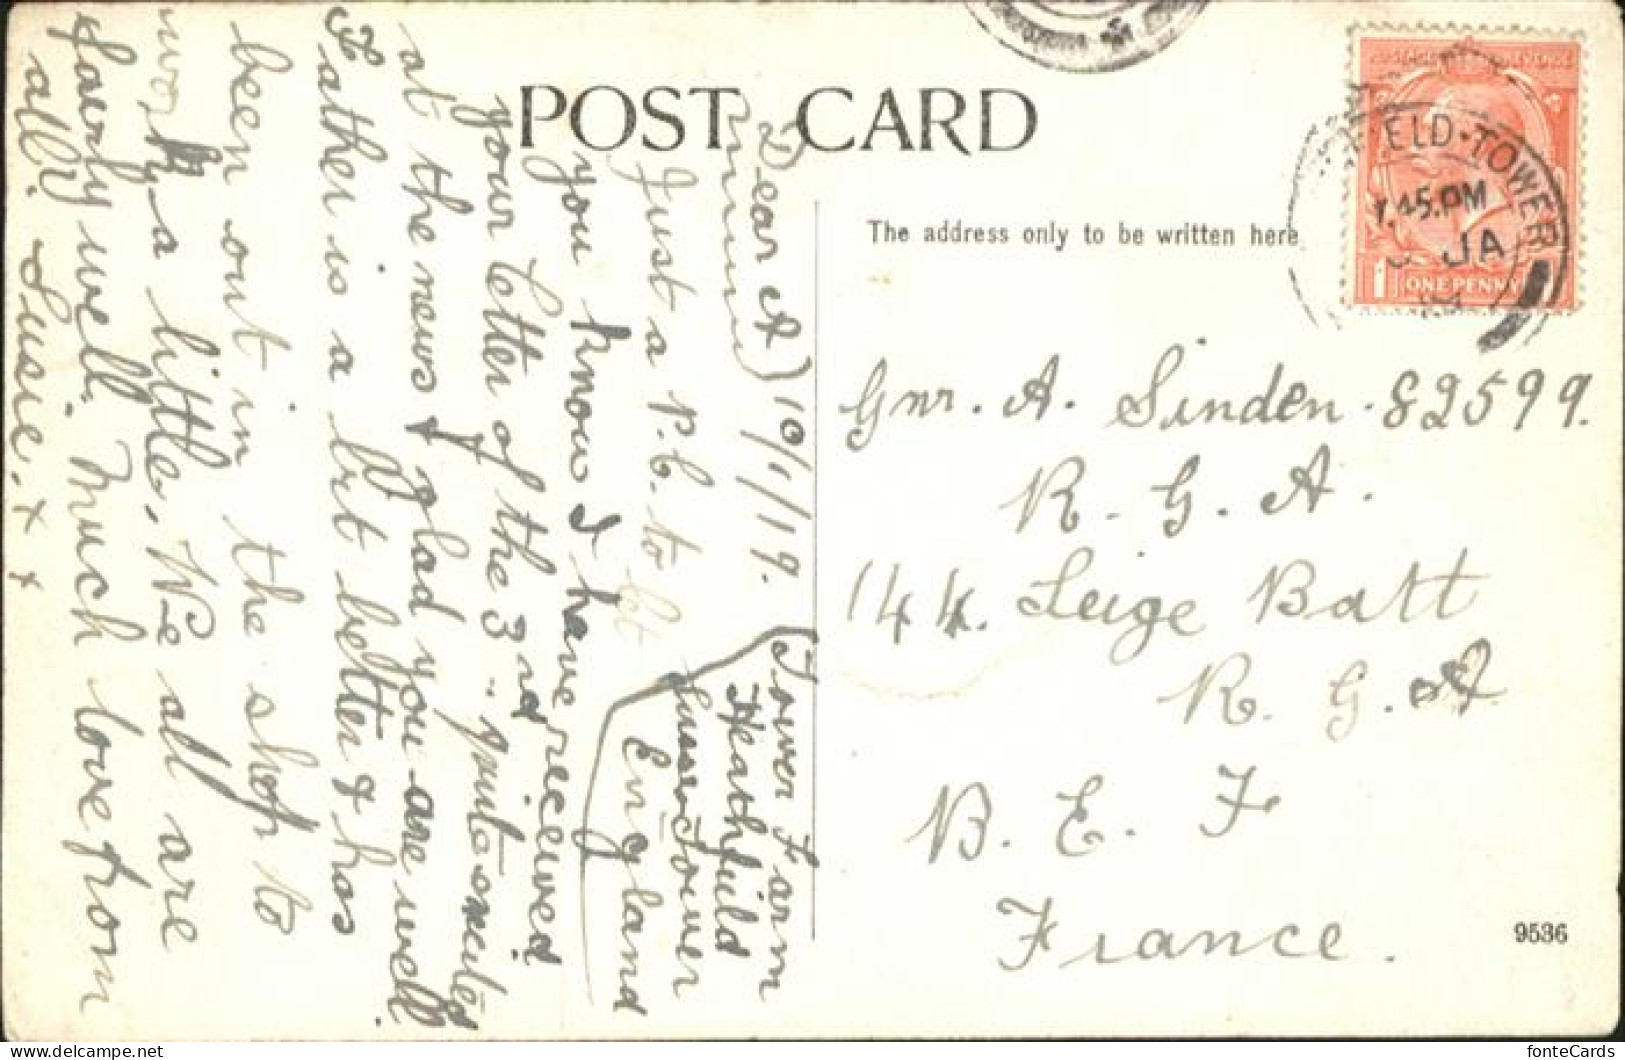 POST CARD
The address only to be written here
ONE PENNY
FIELD-TOWER
.45.PM
JA
Gnr. A. Sinden. 82599.
R. G. A.
144. Leige Batt
R. G. A
B. E. F
France.
9536
Tower Farm
Heathfield
Sussex Tower
England
10/1/19.
Dear A
Just a P.C. to let
you know I have received
your letter of the 3rd. quite
at the news & glad you are well
Father is a bit better & has
been out in the shop to
work a little. We all are
fairly well. Much love from
all. Susie. x x
fonteCards